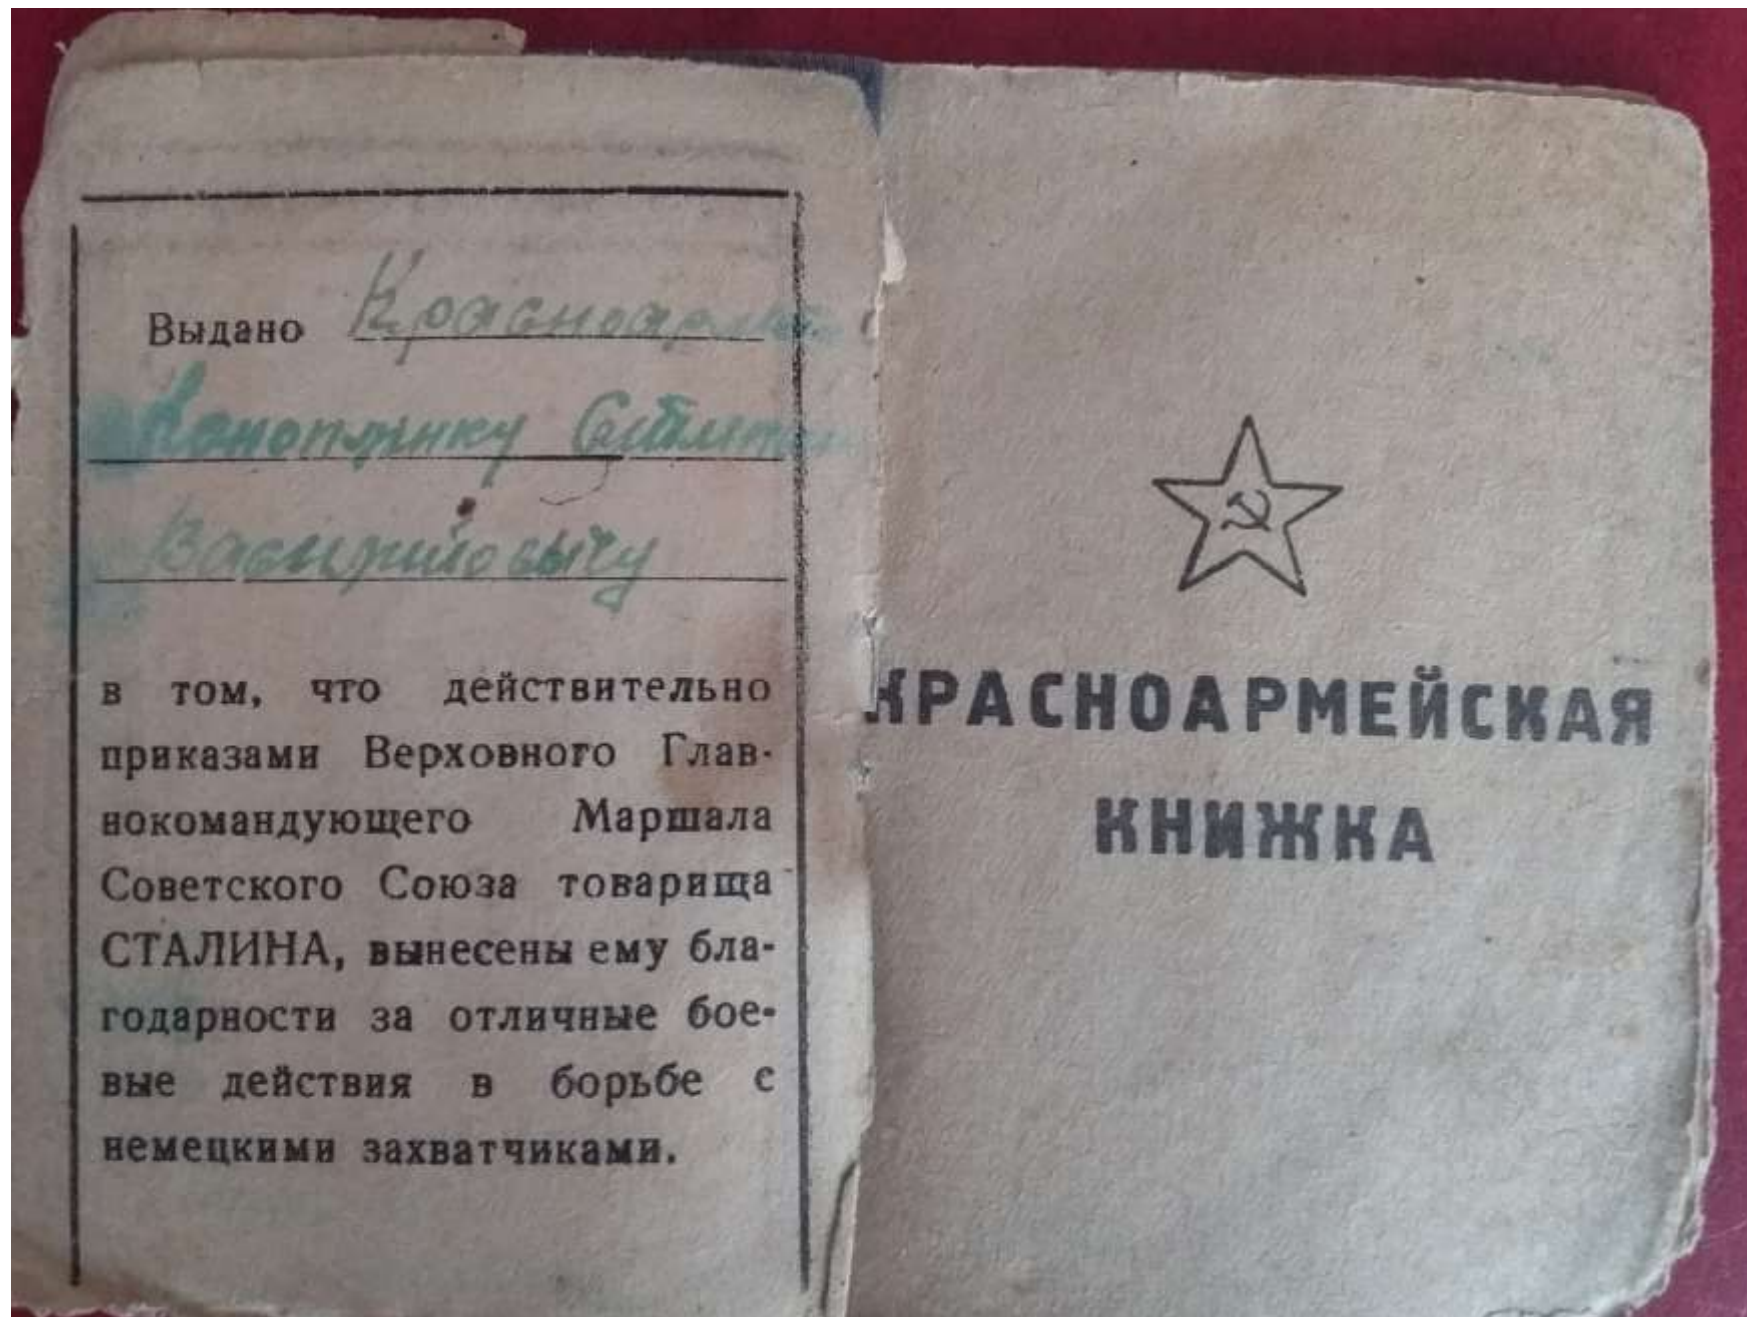 Выдано Красноарм
Коноплянку
Васильовычу
в том, что действительно
приказами Верховного Глав-
нокомандующего Маршала
Советского Союза товарища
СТАЛИНА, вынесены ему бла-
годарности за отличные бое-
вые действия в борьбе с
немецкими захватчиками.
КРАСНОАРМЕЙСКАЯ
КНИЖКА